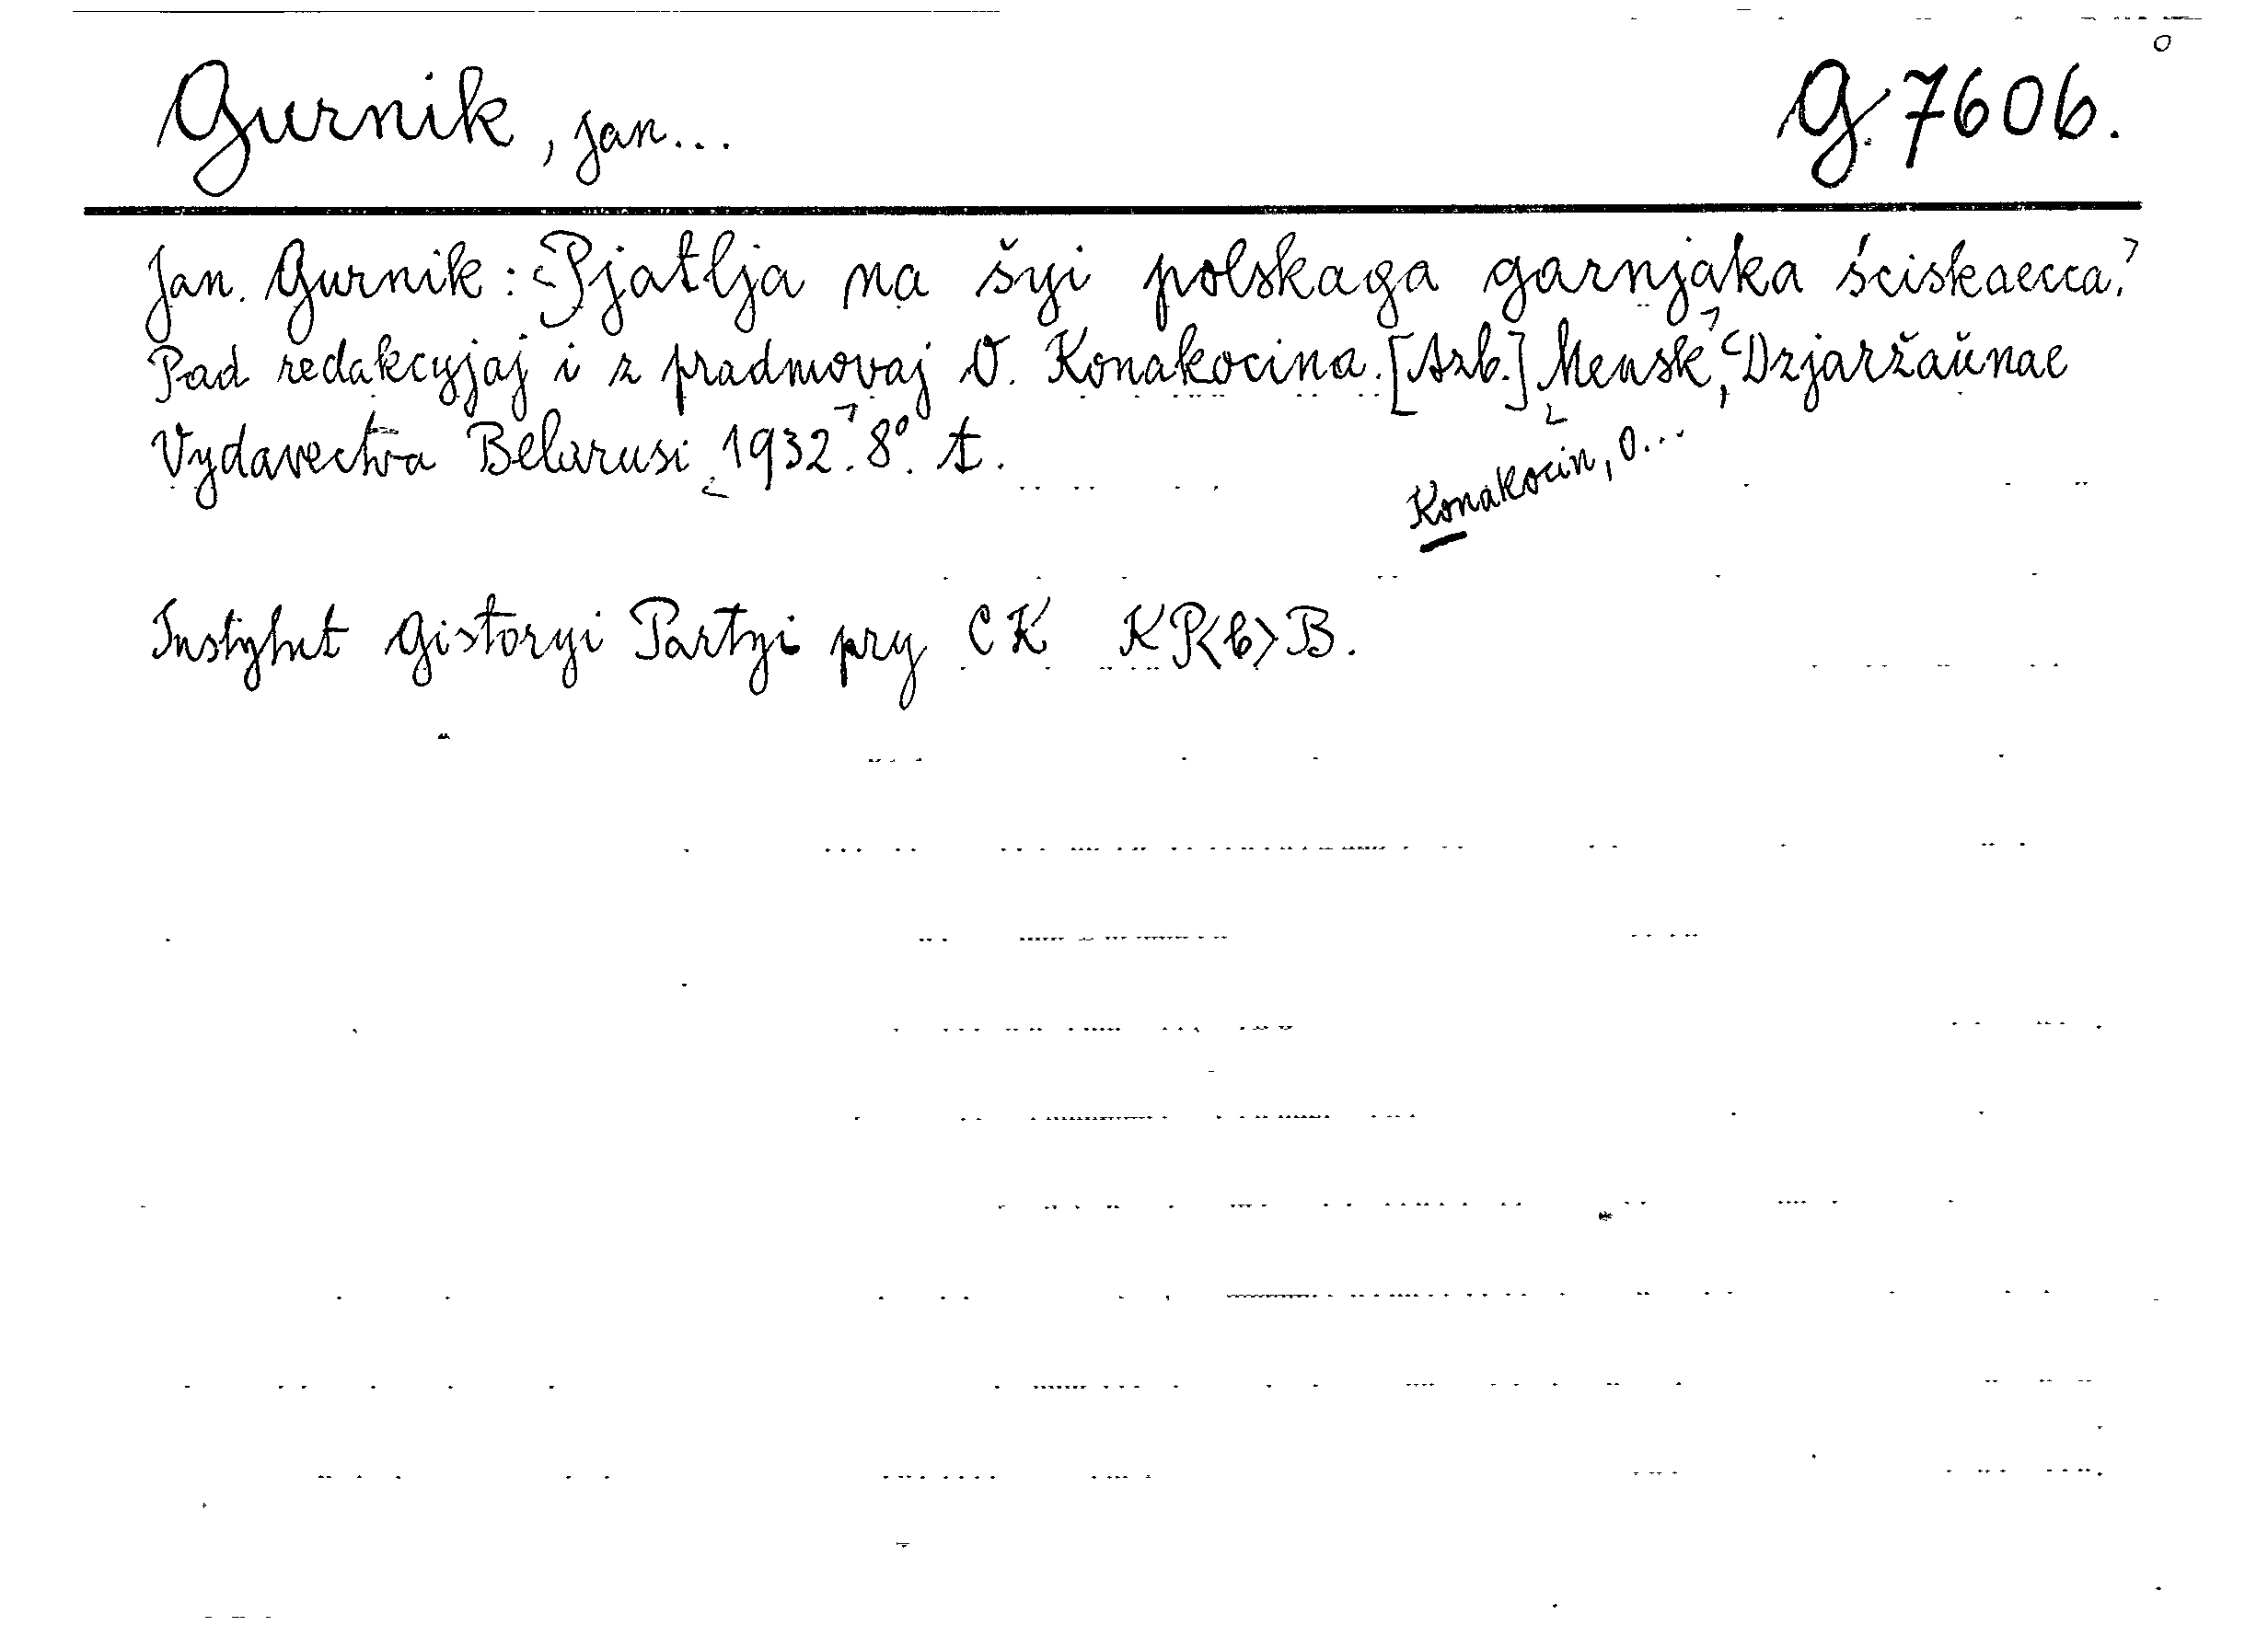 Gurnik, Jan... G. 7606.
Jan. Gurnik: Pjatlja na šyi polskaga garnjaka ściskaecca.
Pad redakcyjaj i z pradmovaj O. Konakocina. [Azb.] Mensk, Dzjaržaŭnae
Vydavectva Belarusi 1932. 8°. t.
Konakocin, O...
Instytut Gistoryi Partyi pry CK KP<b>B.